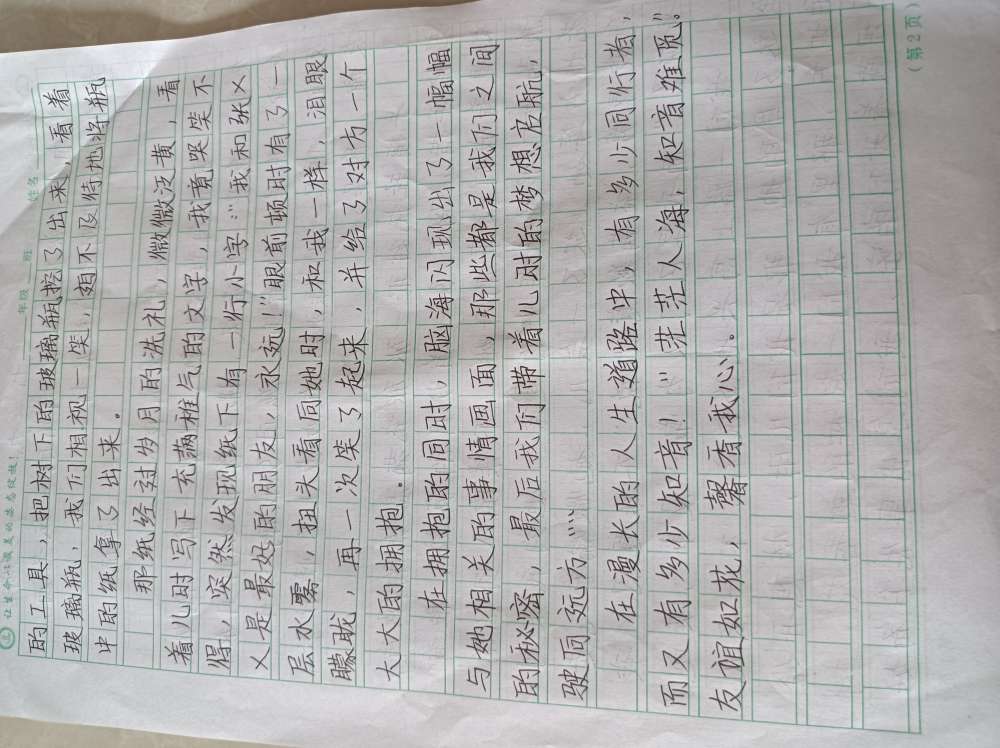 让生命绽放美的姿态绽放！
年级 班 姓名
的工具，把树下的玻璃瓶挖了出来，看着
玻璃瓶，我们相视一笑，迫不及待地将瓶
中的纸拿了出来。
那纸经过岁月的洗礼，微微泛黄，看
着儿时写下充满稚气的文字，我竟哭笑不
得，突然发现纸下有一行小字：“我和张×
×是最好的朋友，永远！”眼前顿时有了一
层水雾，扭头看向她时，和我一样，泪眼
朦胧，再一次笑了起来，并给了对方一个
大大的拥抱。
在拥抱的同时，脑海闪现出了一幅幅
与她相关的事情画面，那些都是我们之间
的秘密，最后我们带着儿时的梦想启航，
驶向远方……
在漫长的人生道路中，有多少同行者，
而又有多少知音！“茫茫人海，知音难觅。”
友谊如花，馨香我心。
（第2页）